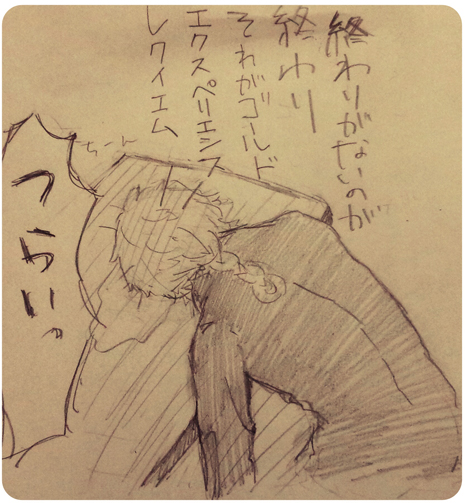 終わりがないのが
終わり
それがゴールド
エクスペリエンス
レクイエム
ちーん
つらい。